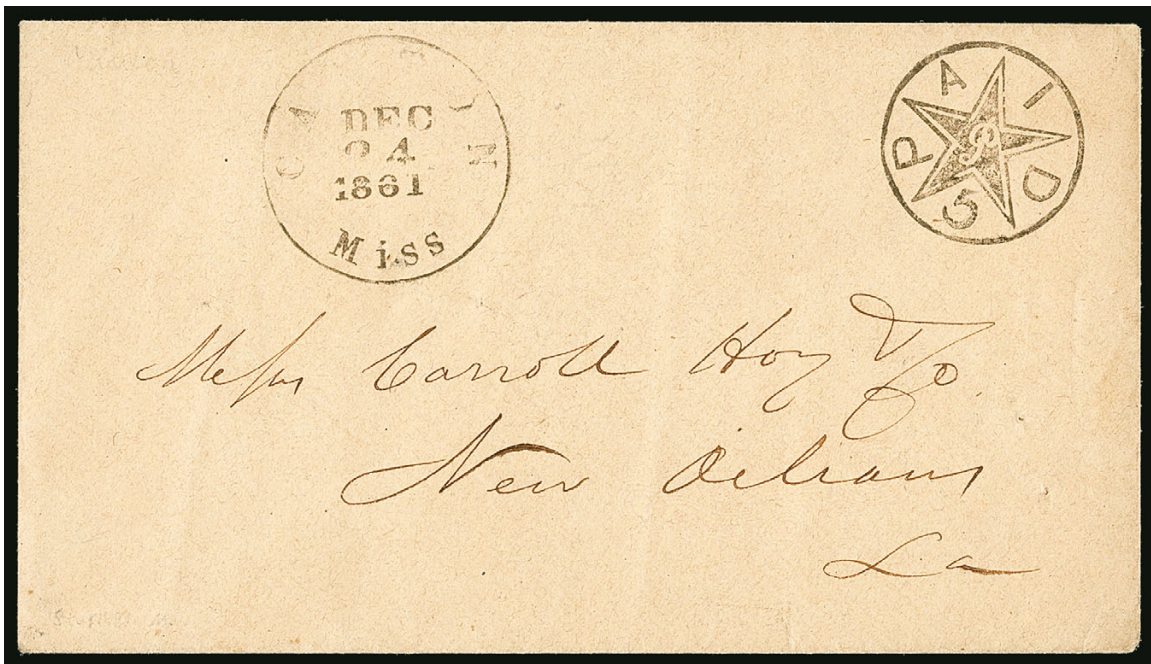 DEC
24
1861
Miss
PAID
5
P
Messrs Carroll Hoy & Co
New Orleans
La